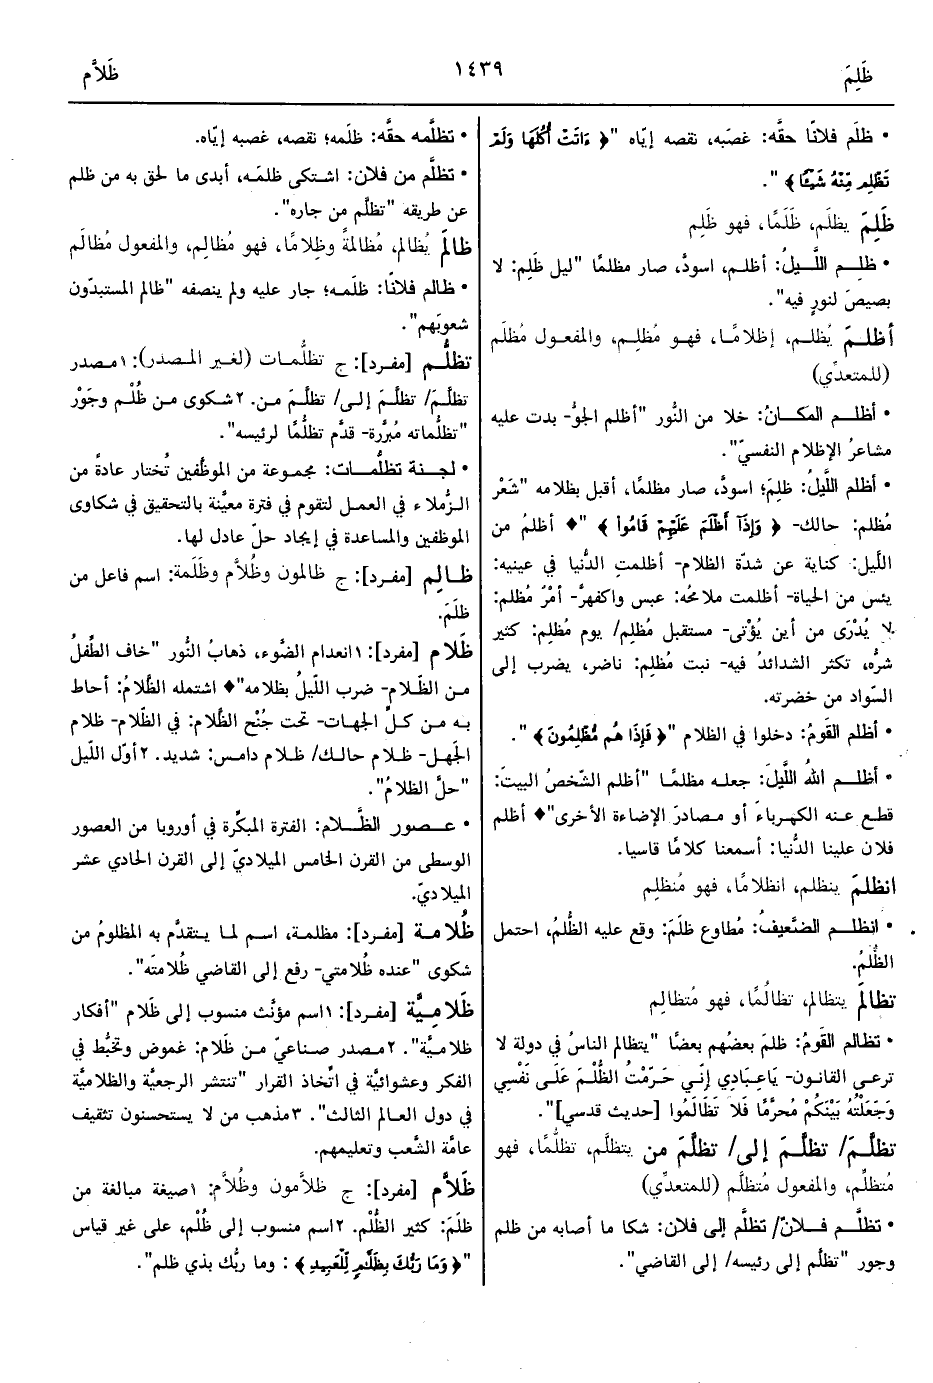 ظَلِمَ
١٤٣٩
ظَلاَّم
• ظلَم فلانًا حقَّه: غصَبه، نقصه إيّاه "﴿ ءَاتَتْ أُكُلَهَا وَلَمْ
تَظْلِم مِّنْهُ شَيْئًا﴾ ".
ظَلِمَ يظلَم، ظَلَمًا، فهو ظَلِم
• ظلِـم اللَّيـلُ: أظلـم، اسودَّ، صار مظلمًا "ليل ظَلِم: لا
بصيصَ لنورٍ فيه".
أظلـمَ يُظلـم، إظلامًـا، فهـو مُظلِـم، والمفعـول مُظلَم
(للمتعدِّي)
• أظلـم المكـانُ: خلا من النُّور "أظلم الجوُّ- بدت عليه
مشاعرُ الإظلام النفسيّ".
• أظلم اللَّيلُ: ظلِمَ؛ اسودَّ، صار مظلمًا، أقبل بظلامه "شَعْر
مُظلم: حالك- ﴿ وَإِذَآ أَظْلَمَ عَلَيْهِمْ قَامُواْ ﴾ "♦ أظلمُ من
اللَّيل: كناية عن شدّة الظلام- أظلمتِ الدُّنيا في عينيه:
يئس من الحياة- أظلمت ملامحُه: عبس واكفهرَّ- أمْرٌ مُظلم:
لا يُدْرَى من أين يُؤتى- مستقبل مُظلِم/ يوم مُظلِم: كثير
شرُّه، تكثر الشدائدُ فيه- نبت مُظلِم: ناضر، يضرب إلى
السّواد من خضرته.
• أظلم القَومُ: دخلوا في الظلام "﴿ فَإِذَا هُم مُّظْلِمُونَ ﴾ ".
• أظلـم اللهُ اللَّيلَ: جعلـه مظلمًـا "أظلم الشّخصُ البيتَ:
قطـع عنه الكهرباءَ أو مصادرَ الإضاءة الأخرى"♦ أظلم
فلان علينا الدُّنيا: أسمعنا كلامًا قاسيا.
انظلمَ ينظلم، انظلامًا، فهو مُنظلِم
• انظلـم الضَّعيفُ: مُطاوع ظلَمَ: وقع عليه الظُّلمُ، احتمل
الظُّلمَ.
تظالمَ يتظالم، تظالُمًا، فهو مُتظالِم
• تظالم القَومُ: ظلمَ بعضُهم بعضًا "يتظالم الناسُ في دولة لا
ترعـى القانـون- يَاعِبَادِي إِنّي حَرّمْتُ الظُّلْمَ عَلَى نَفْسِي
وَجَعَلْتُهُ بَيْنَكُمْ مُحَرَّمًا فَلا تَظَالَمُوا [حديث قدسي]".
تظلَّـمَ/ تظلَّـمَ إلى/ تظلَّمَ من يتظلَّم، تظلُّمًا، فهو
مُتظلِّم، والمفعول مُتظلَّم (للمتعدِّي)
• تظلَّـم فـلانٌ/ تظلَّم إلى فلان: شكا ما أصابه من ظلم
وجور "تظلَّم إلى رئيسه/ إلى القاضي".
• تظلَّمه حقَّه: ظلَمه؛ نقصه، غصبه إيّاه.
• تظلَّم من فلان: اشتكى ظلمَه، أبدى ما لحق به من ظلم
عن طريقه "تظلَّم من جاره".
ظالمَ يُظالم، مُظالمةً وظِلامًا، فهو مُظالِم، والمفعول مُظالَم
• ظالم فلانًا: ظلَمه؛ جار عليه ولم ينصفه "ظالم المستبدّون
شعوبَهم".
تظلُّـم [مفرد]: ج تظلُّمـات (لغير المـصدر): ١مصدر
تظلَّمَ/ تظلَّمَ إلى/ تظلَّمَ من. ٢شكوى من ظُلْم وجَوْر
"تظلُّماته مُبرَّرة- قدَّم تظلُّمًا لرئيسه".
• لجـنة تظلُّمـات: مجموعة من الموظَّفين تُختار عادةً من
الزُّملاء في العمـل لتقوم في فترة معيَّنة بالتحقيق في شكاوى
الموظفين والمساعدة في إيجاد حلّ عادل لها.
ظـالِم [مفرد]: ج ظالمون وظُلاَّم وظَلَمة: اسم فاعل من
ظلَمَ.
ظَلام [مفرد]: ١انعدام الضَّوء، ذهابُ النُّور "خاف الطِّفلُ
مـن الظّـلام- ضرب اللّيلُ بظلامه"♦ اشتمله الظَّلامُ: أحاط
بـه مـن كـلِّ الجهـات- تحت جُنْح الظَّلام: في الظّلام- ظلام
الجَهـل- ظـلام حالـك/ ظـلام دامس: شديد. ٢أوّل اللّيل
"حلَّ الظلامُ".
• عـصور الظَّـلام: الفترة المبكِّرة في أوروبا من العصور
الوسطى من القرن الخامس الميلاديّ إلى القرن الحادي عشر
الميلاديّ.
ظُلامـة [مفرد]: مظلمة، اسـم لمـا يـتقدَّم به المظلومُ من
شكوى "عنده ظُلامتي- رفع إلى القاضي ظُلامتَه".
ظَلامِـيَّة [مفـرد]: ١اسم مؤنَّث منسوب إلى ظَلام "أفكار
ظلاميَّة". ٢مـصدر صـناعيّ مـن ظَلام: غموض وتخبُّط في
الفكر وعشوائيَّة في اتِّخاذ القرار "تنتشر الرجعيَّة والظلاميَّة
في دول العالم الثالث". ٣مذهب من لا يستحسنون تثقيف
عامَّة الشَّعب وتعليمهم.
ظَلاَّم [مفرد]: ج ظلاَّمون وظُلاَّم: ١صيغة مبالغة من
ظلَمَ: كثير الظُّلْم. ٢اسم منسوب إلى ظُلْم، على غير قياس
"﴿ وَمَا رَبُّكَ بِظَلَّٰمٍ لِّلْعَبِيدِ ﴾ : وما ربُّك بذي ظلم".